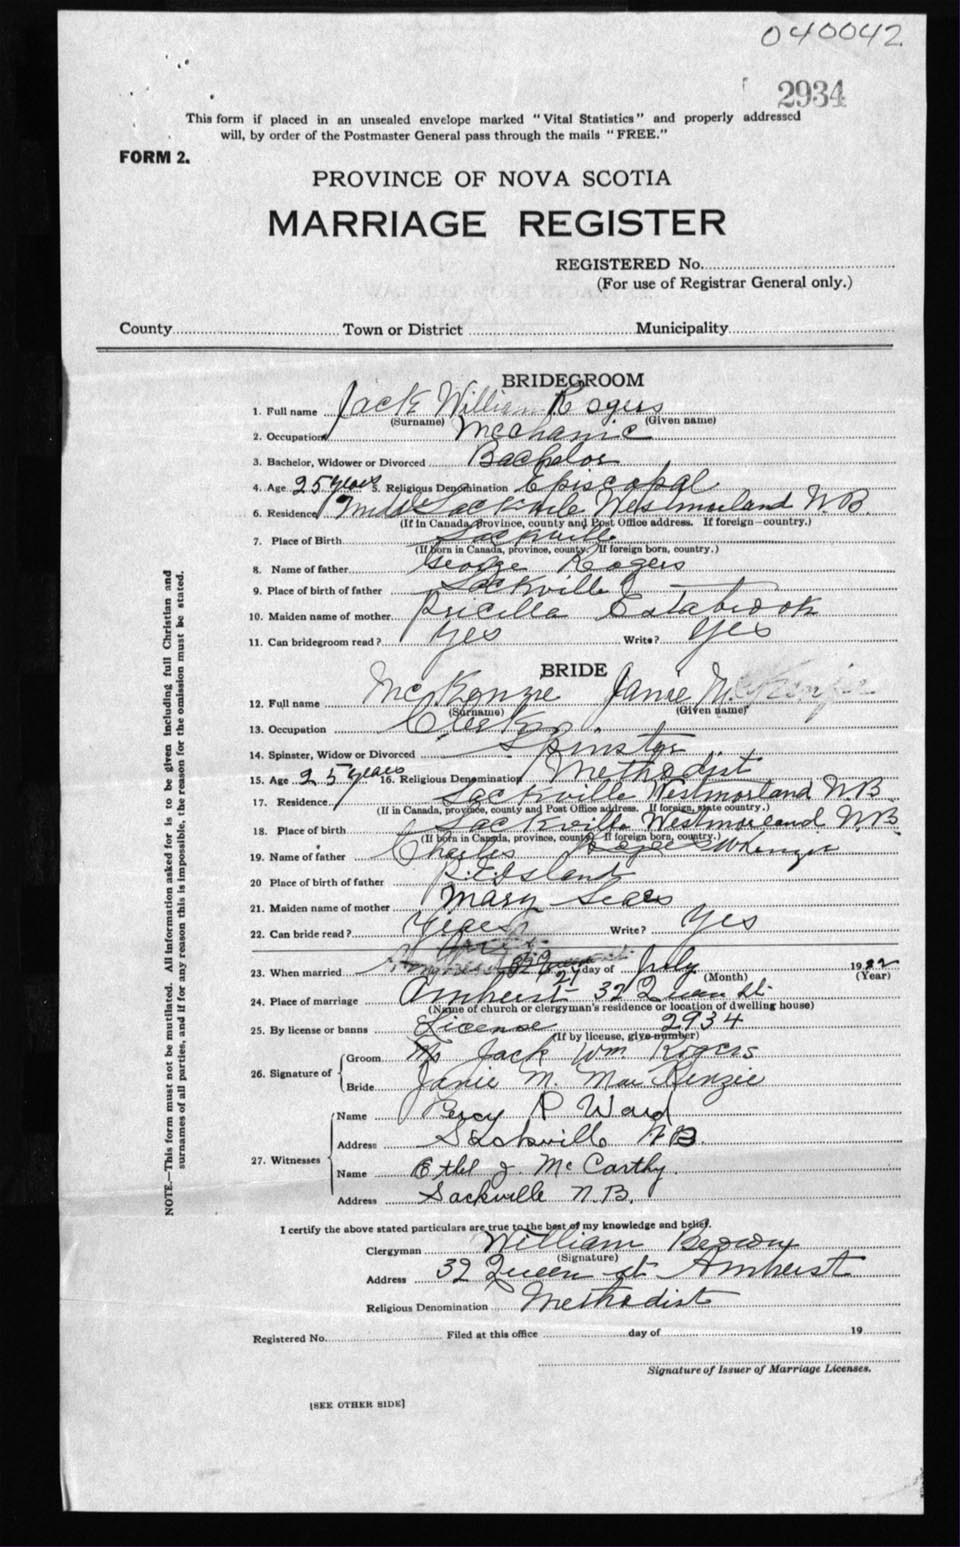 040042
2934
This form if placed in an unsealed envelope marked "Vital Statistics" and properly addressed
will, by order of the Postmaster General pass through the mails "FREE."
FORM 2.
PROVINCE OF NOVA SCOTIA
MARRIAGE REGISTER
REGISTERED No.
(For use of Registrar General only.)
County Town or District Municipality
BRIDEGROOM
1. Full name Jack William Rogers
(Surname) (Given name)
2. Occupation Mechanic
3. Bachelor, Widower or Divorced Bachelor
4. Age 25 years 5. Religious Denomination Episcopal
6. Residence Middle Sackville Westmorland N.B.
(If in Canada, Province, county and Post Office address. If foreign—country.)
7. Place of Birth Sackville
(If born in Canada, province, county. If foreign born, country.)
8. Name of father George Rogers
9. Place of birth of father Sackville
10. Maiden name of mother Pricilla Estabrook
11. Can bridegroom read? Yes Write? Yes
BRIDE
12. Full name McKenzie Janie M. McKenzie
(Surname) (Given name)
13. Occupation Clerk
14. Spinster, Widow or Divorced Spinster
15. Age 25 years 16. Religious Denomination Methodist
17. Residence Sackville Westmorland N.B.
(If in Canada, province, county and Post Office address. If foreign, state country.)
18. Place of birth Sackville Westmorland N.B.
(If born in Canada, province, county. If foreign born, country.)
19. Name of father Charles McKenzie
20 Place of birth of father P.E. Island
21. Maiden name of mother Mary Sears
22. Can bride read? Yes Write? Yes
23. When married 27 day of July 1922
(Month) (Year)
24. Place of marriage Amherst 32 Queen St.
(Name of church or clergyman's residence or location of dwelling house)
25. By license or banns License 2934
(If by license, give number)
26. Signature of
Groom Jack Wm. Rogers
Bride Janie M. MacKenzie
27. Witnesses
Name Percy P Ward
Address Sackville N.B.
Name Ethel J. McCarthy.
Address Sackville N.B.
I certify the above stated particulars are true to the best of my knowledge and belief.
Clergyman William Brown
(Signature)
Address 32 Queen St. Amherst
Religious Denomination Methodist
Registered No. Filed at this office day of 19
Signature of Issuer of Marriage Licenses.
[SEE OTHER SIDE]
NOTE.—This form must not be mutilated. All information asked for is to be given including full Christian and
surnames of all parties, and if for any reason this is impossible, the reason for the omission must be stated.